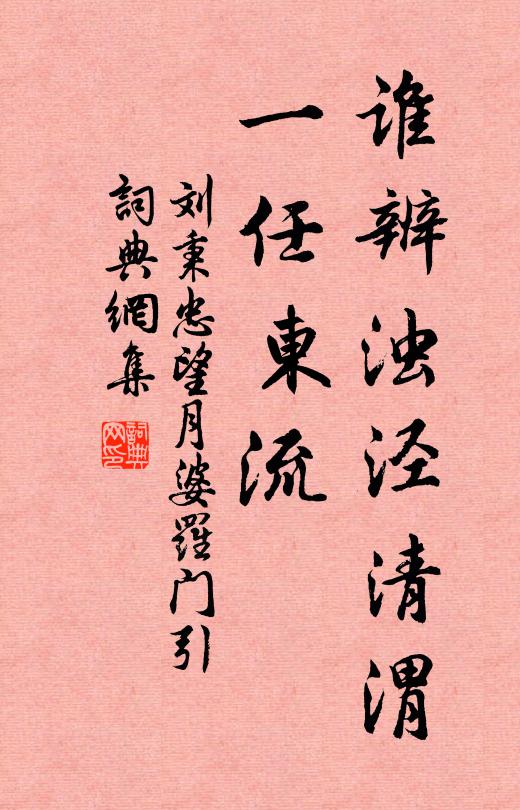 谁辨浊泾清渭
一任東流
刘秉忠望月婆羅门引
詞典網集
詞典网印